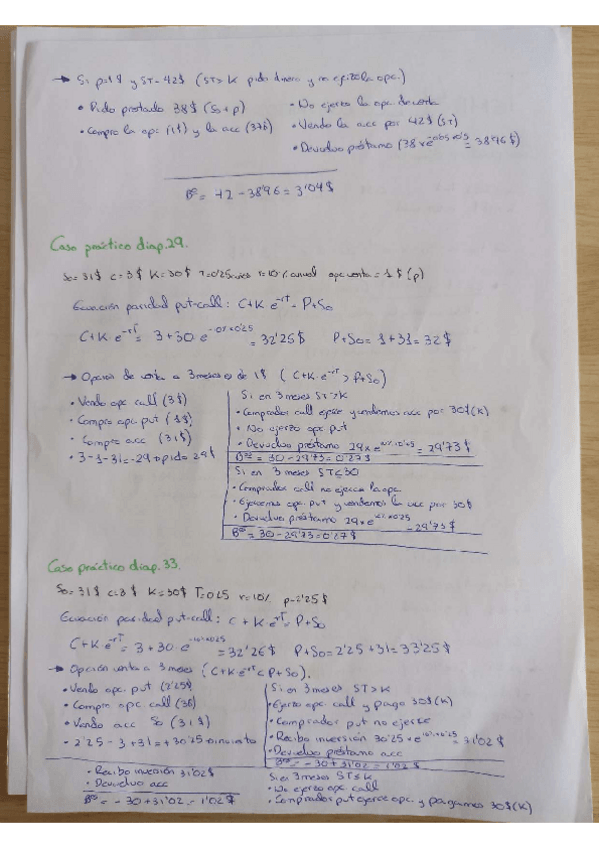 → Si p=1$ y ST=42$ (ST>K pido dinero y no ejerzo la opc.)
• Pido prestado 38$ (So+p)
• Compro la opc (1$) y la acc (37$)
• No ejerzo la opc. de venta
• Vendo la acc por 42$ (ST)
• Devuelvo préstamo (38 x e^0'05x0'5 = 38'96$)
Bº = 42 - 38'96 = 3'04$
Caso práctico diap.29.
So=31$ c=3$ K=30$ T=0'25 r=10% anual opc venta = 1$ (p)
Ecuación paridad put-call: C+K·e^-rT = P+So
C+K·e^-rT = 3+30·e^-0'1x0'25 = 32'25$ P+So = 1+31 = 32$
→ Opción de venta a 3 meses es de 1$ (C+K·e^-rT > P+So)
• Vendo opc call (3$)
• Compro opc. put (1$)
• Compro acc (31$)
• 3-1-31=-29 → pido = 29$
Si en 3 meses ST>K
• Comprador call ejerce y vendemos acc por 30$(K)
• No ejerzo opc. put
• Devuelvo préstamo 29xe^0'1x0'25 = 29'73$
Bº = 30 - 29'73 = 0'27$
Si en 3 meses ST≤30
• Comprador call no ejerce la opc
• Ejercemos opc. put y vendemos la acc por 30$
• Devuelvo préstamo 29xe^0'1x0'25 = 29'73$
Bº = 30 - 29'73 = 0'27$
Caso práctico diap.33.
So=31$ c=3$ K=30$ T=0'25 r=10% p=2'25$
Ecuación paridad put-call: C+K·e^-rT = P+So
C+K·e^-rT = 3+30·e^-0'1x0'25 = 32'26$ P+So = 2'25+31 = 33'25$
→ Opción venta a 3 meses (C+K·e^-rT < P+So).
• Vendo opc. put (2'25$)
• Compro opc. call (3$)
• Vendo acc So (31$)
• 2'25-3+31=+30'25 → invierto
Si en 3 meses ST>K
• Ejerzo opc. call y pago 30$(K)
• Comprador put no ejerce
• Recibo inversión 30'25 x e^0'1x0'25 = 31'02$
• Devuelvo préstamo acc
Bº = -30+31'02 = 1'02$
Si en 3 meses ST≤K
• No ejerzo opc. call
• Comprador put ejerce opc. y pagamos 30$(K)
• Recibo inversión 31'02$
• Devuelvo acc
Bº = -30+31'02 = 1'02$